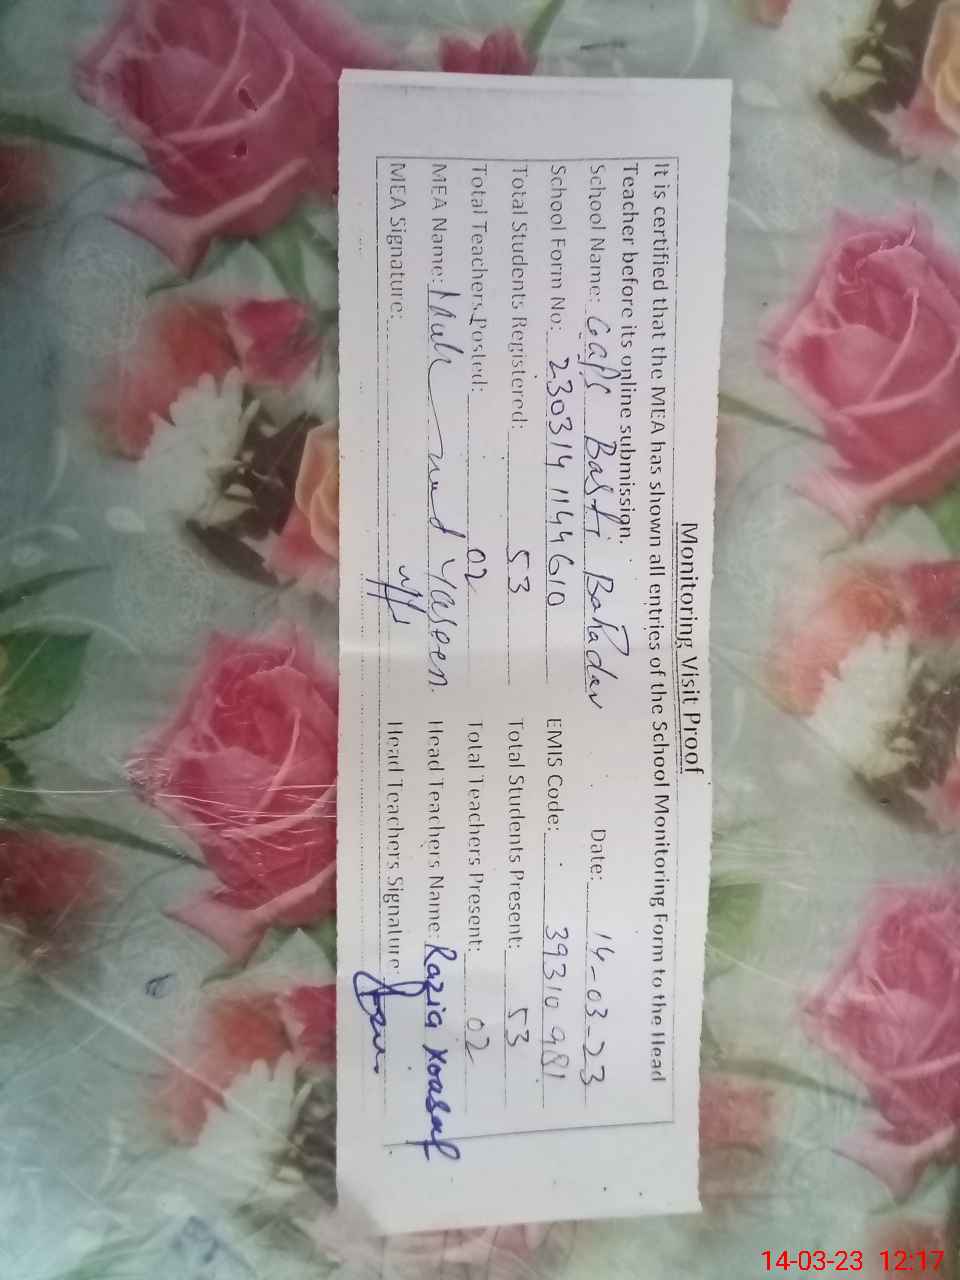 Monitoring Visit Proof
It is certified that the MEA has shown all entries of the School Monitoring Form to the Head
Teacher before its online submission.
School Name: Basti Date: 14-03-23
School Form No: 2303141144610 EMIS Code: 39310981
Total Students Registered: 53 Total Students Present: 53
Total Teachers Posted: 02 Total Teachers Present: 02
MEA Name: Yaseen. Head Teachers Name: Razia
MEA Signature: Head Teachers Signature:
14-03-23 12:17